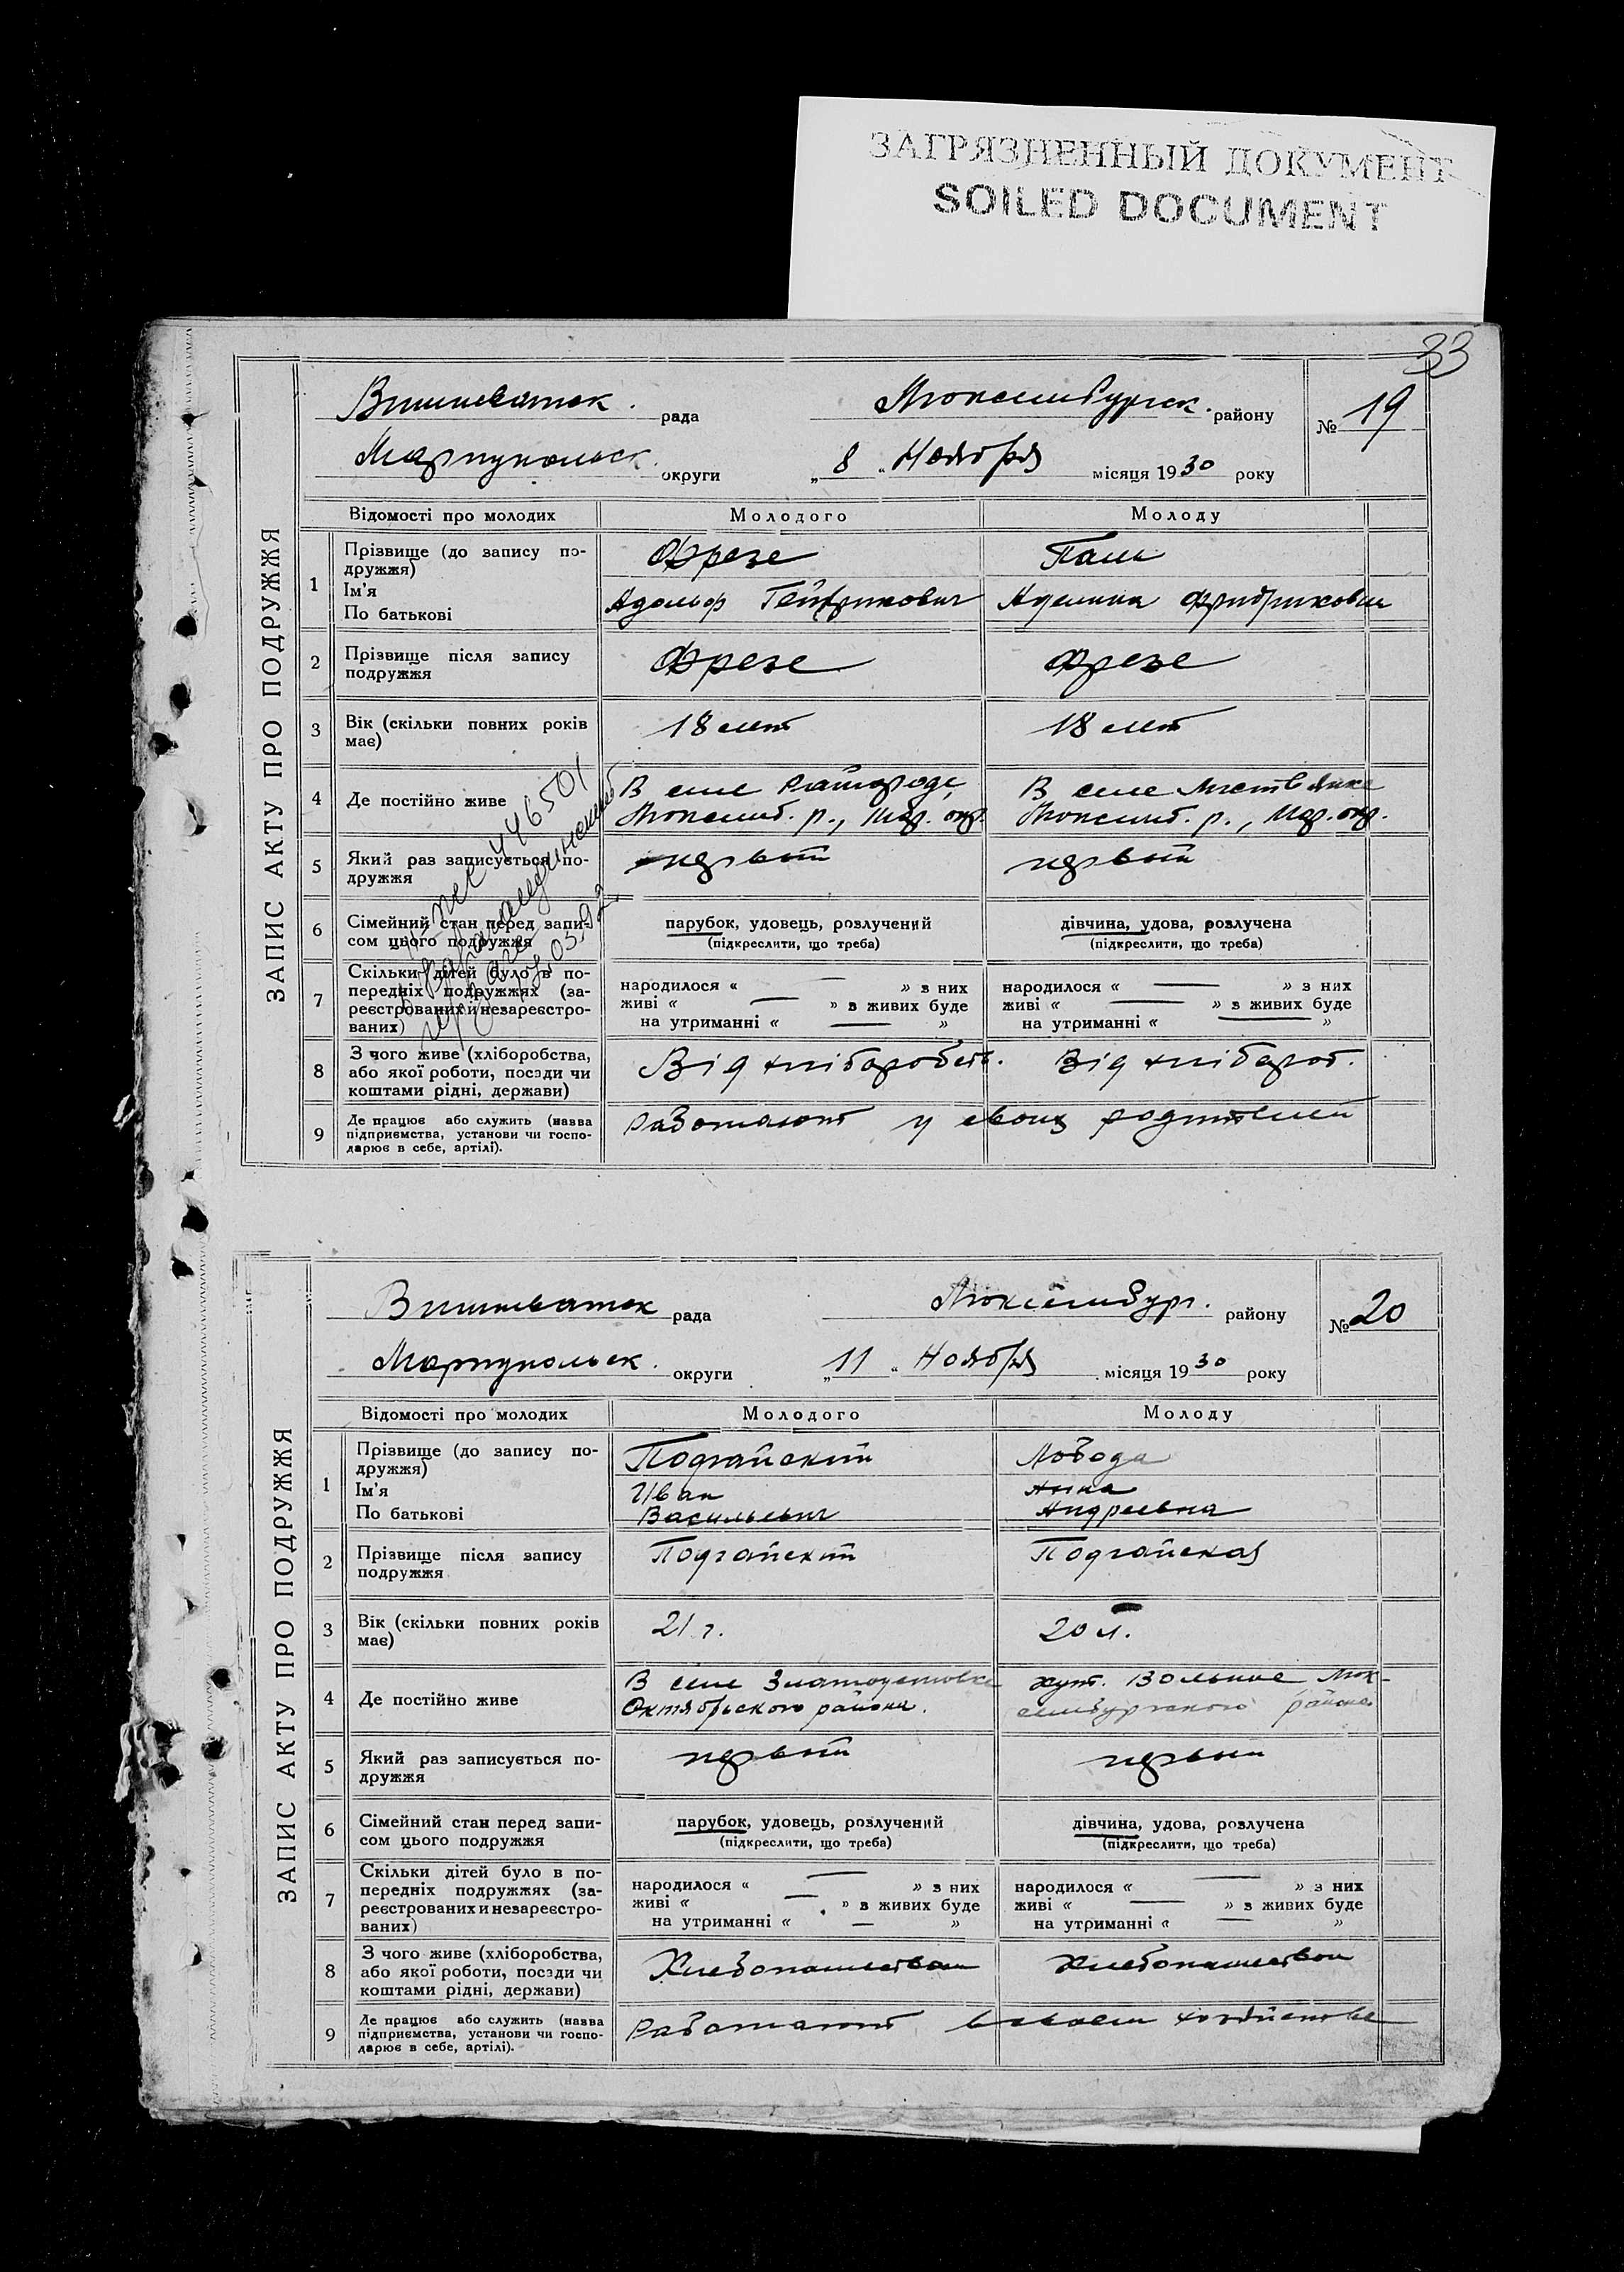 ЗАГРЯЗНЕННЫЙ ДОКУМЕНТ
SOILED DOCUMENT
33
ЗАПИС АКТУ ПРО ПОДРУЖЖЯ
Вишневатск. рада Люксембургск. району № 19
Мариупольск. округи „8“ Ноября місяця 1930 року
Відомості про молодих Молодого Молоду
1 Прізвище (до запису по-
дружжя) Фрезе
Ім'я
По батькові Адольф Гейнрихович Аделина
2 Прізвище після запису
подружжя Фрезе Фрезе
3 Вік (скільки повних років
має) 18 лет 18 лет
4 Де постійно живе В селе Райгороде, В селе
Люксемб. р., Мар. окр. Люксемб. р., Мар. окр.
5 Який раз записується по-
дружжя первый первый
6 Сімейний стан перед запи-
сом цього подружжя
парубок, удовець, розлучений дівчина, удова, розлучена
(підкреслити, що треба) (підкреслити, що треба)
7 Скільки дітей було в по-
передніх подружжях (за-
реєстрованих и незареєстро-
ваних)
народилося « — » з них народилося « — » з них
живі « — » з живих буде живі « — » з живих буде
на утриманні « — » на утриманні « — »
8 З чого живе (хліборобства,
або якої роботи, посади чи
коштами рідні, держави)
Від хліборобств. Від хлібороб.
9 Де працює або служить (назва
підприємства, установи чи госпо-
дарює в себе, артілі).
работают у своих родителей
446501
ЗАПИС АКТУ ПРО ПОДРУЖЖЯ
Вишневатск рада Люксембург. району № 20
Мариупольск. округи „11“ Ноября місяця 1930 року
Відомості про молодих Молодого Молоду
1 Прізвище (до запису по-
дружжя) Подгайский Лобода
Ім'я Иван Анна
По батькові Васильевич Андреевна
2 Прізвище після запису
подружжя Подгайский Подгайская
3 Вік (скільки повних років
має) 21 г. 20 л.
4 Де постійно живе В селе Златоустовке хут. Вольное Люк-
Октябрьского района. сембургского района
5 Який раз записується по-
дружжя первый первый
6 Сімейний стан перед запи-
сом цього подружжя
парубок, удовець, розлучений дівчина, удова, розлучена
(підкреслити, що треба) (підкреслити, що треба)
7 Скільки дітей було в по-
передніх подружжях (за-
реєстрованих и незареєстро-
ваних)
народилося « — » з них народилося « — » з них
живі « — » з живих буде живі « — » з живих буде
на утриманні « — » на утриманні « — »
8 З чого живе (хліборобства,
або якої роботи, посади чи
коштами рідні, держави)
Хлебопашеством Хлебопашеством
9 Де працює або служить (назва
підприємства, установи чи госпо-
дарює в себе, артілі).
работают в своем хозяйстве